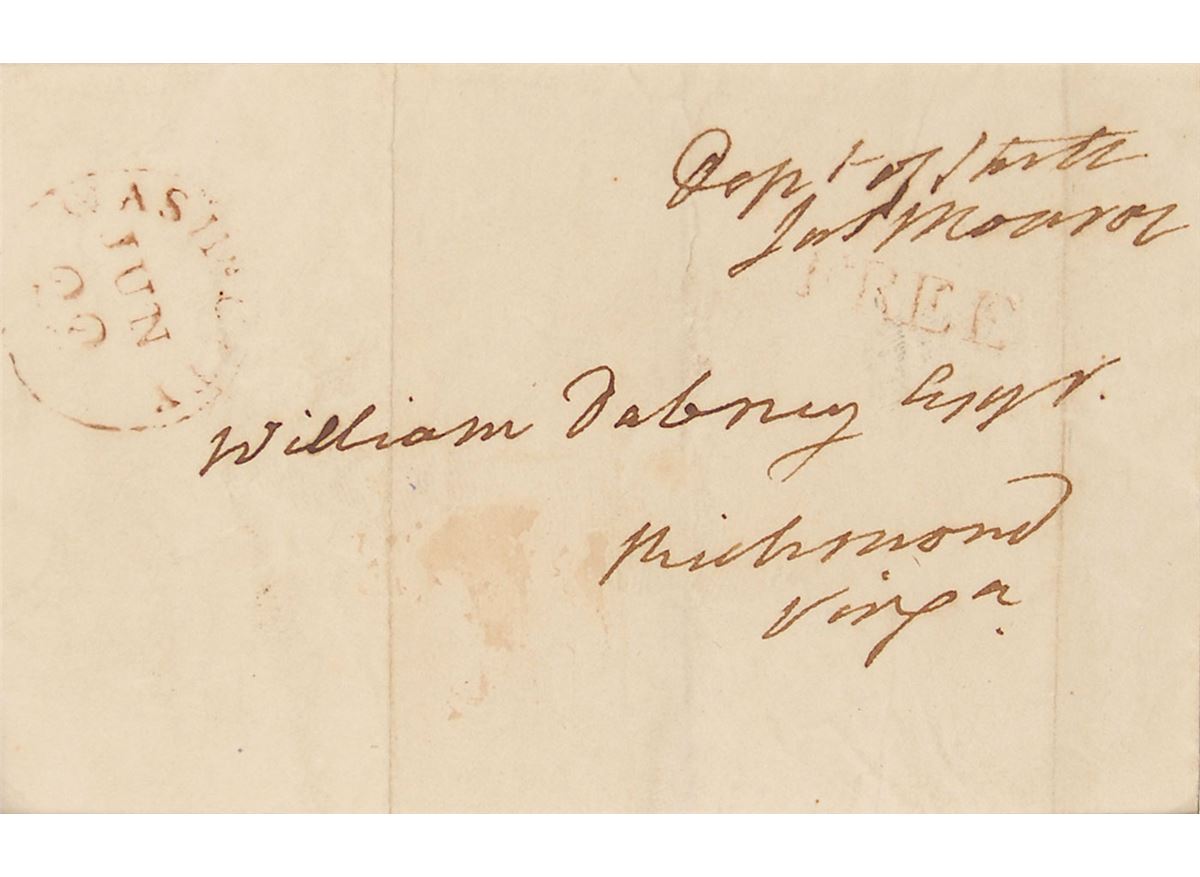 Dept of State
Jas Monroe
FREE
WASHN CITY
JUN
William Dabney Esqr.
Richmond
Virga